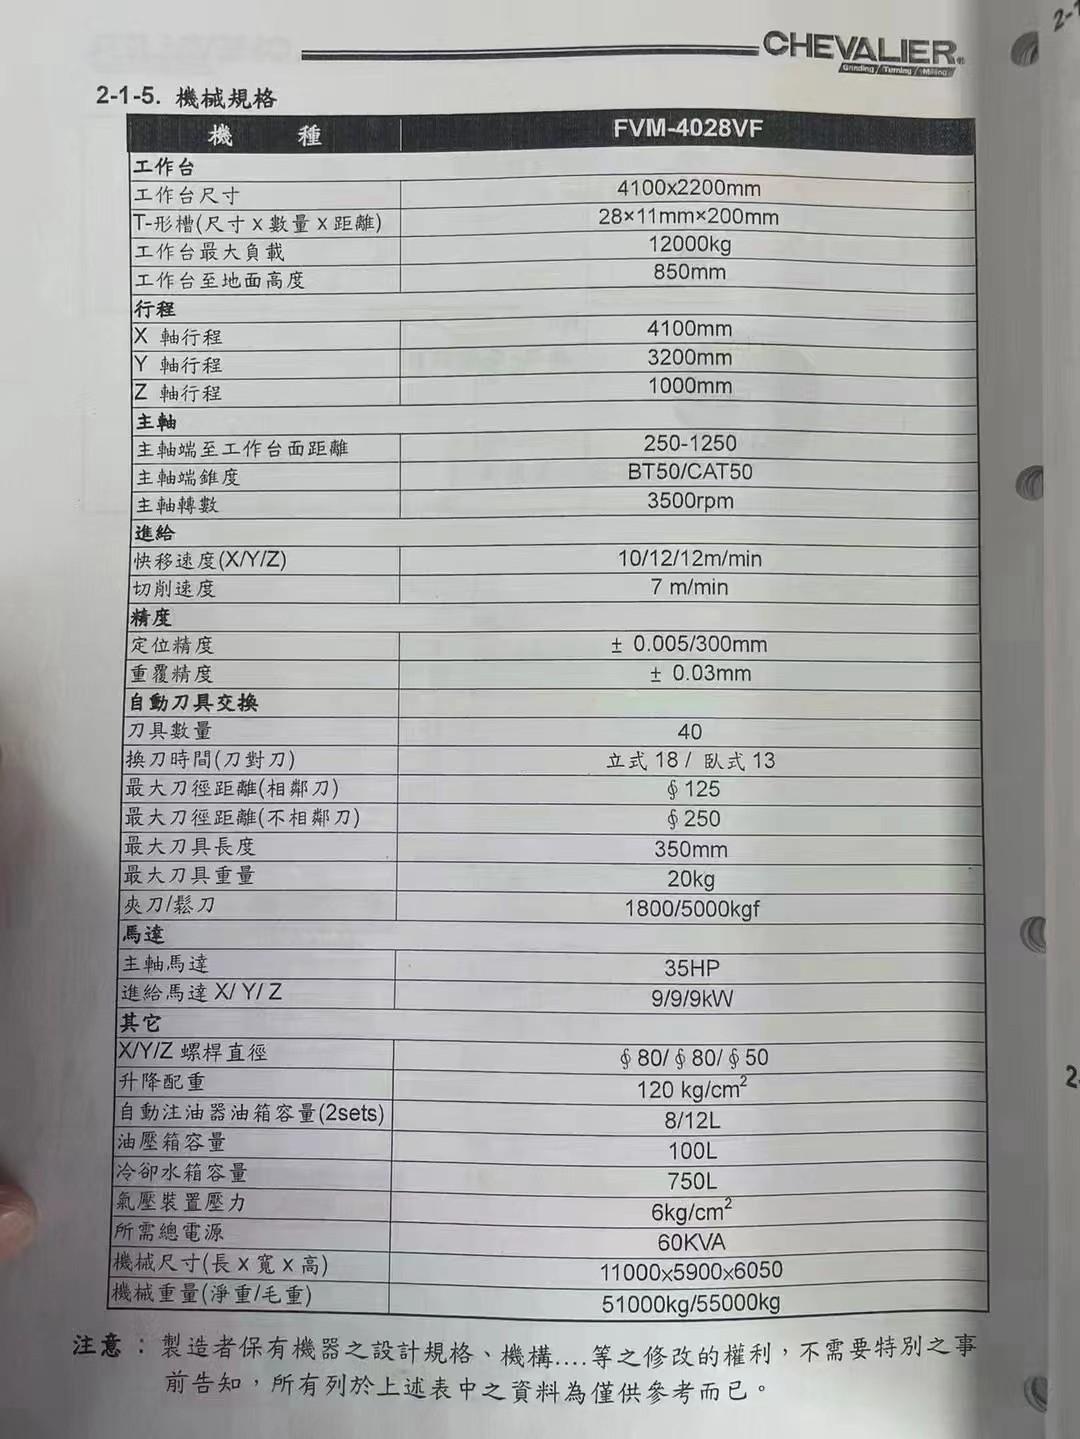 2-1
CHEVALIER®
Grinding / Turning / Milling
2-1-5. 機械規格
機 種 FVM-4028VF
工作台
工作台尺寸 4100x2200mm
T-形槽(尺寸 x 數量 x 距離) 28×11mm×200mm
工作台最大負載 12000kg
工作台至地面高度 850mm
行程
X 軸行程 4100mm
Y 軸行程 3200mm
Z 軸行程 1000mm
主軸
主軸端至工作台面距離 250-1250
主軸端錐度 BT50/CAT50
主軸轉數 3500rpm
進給
快移速度(X/Y/Z) 10/12/12m/min
切削速度 7 m/min
精度
定位精度 ± 0.005/300mm
重覆精度 ± 0.03mm
自動刀具交換
刀具數量 40
換刀時間(刀對刀) 立式 18 / 臥式 13
最大刀徑距離(相鄰刀) ∮125
最大刀徑距離(不相鄰刀) ∮250
最大刀具長度 350mm
最大刀具重量 20kg
夾刀/鬆刀 1800/5000kgf
馬達
主軸馬達 35HP
進給馬達 X/ Y/ Z 9/9/9kW
其它
X/Y/Z 螺桿直徑 ∮80/∮80/∮50
升降配重 120 kg/cm²
自動注油器油箱容量(2sets) 8/12L
油壓箱容量 100L
冷卻水箱容量 750L
氣壓裝置壓力 6kg/cm²
所需總電源 60KVA
機械尺寸(長 x 寬 x 高) 11000×5900×6050
機械重量(淨重/毛重) 51000kg/55000kg
注意：製造者保有機器之設計規格、機構....等之修改的權利，不需要特別之事
前告知，所有列於上述表中之資料為僅供參考而已。